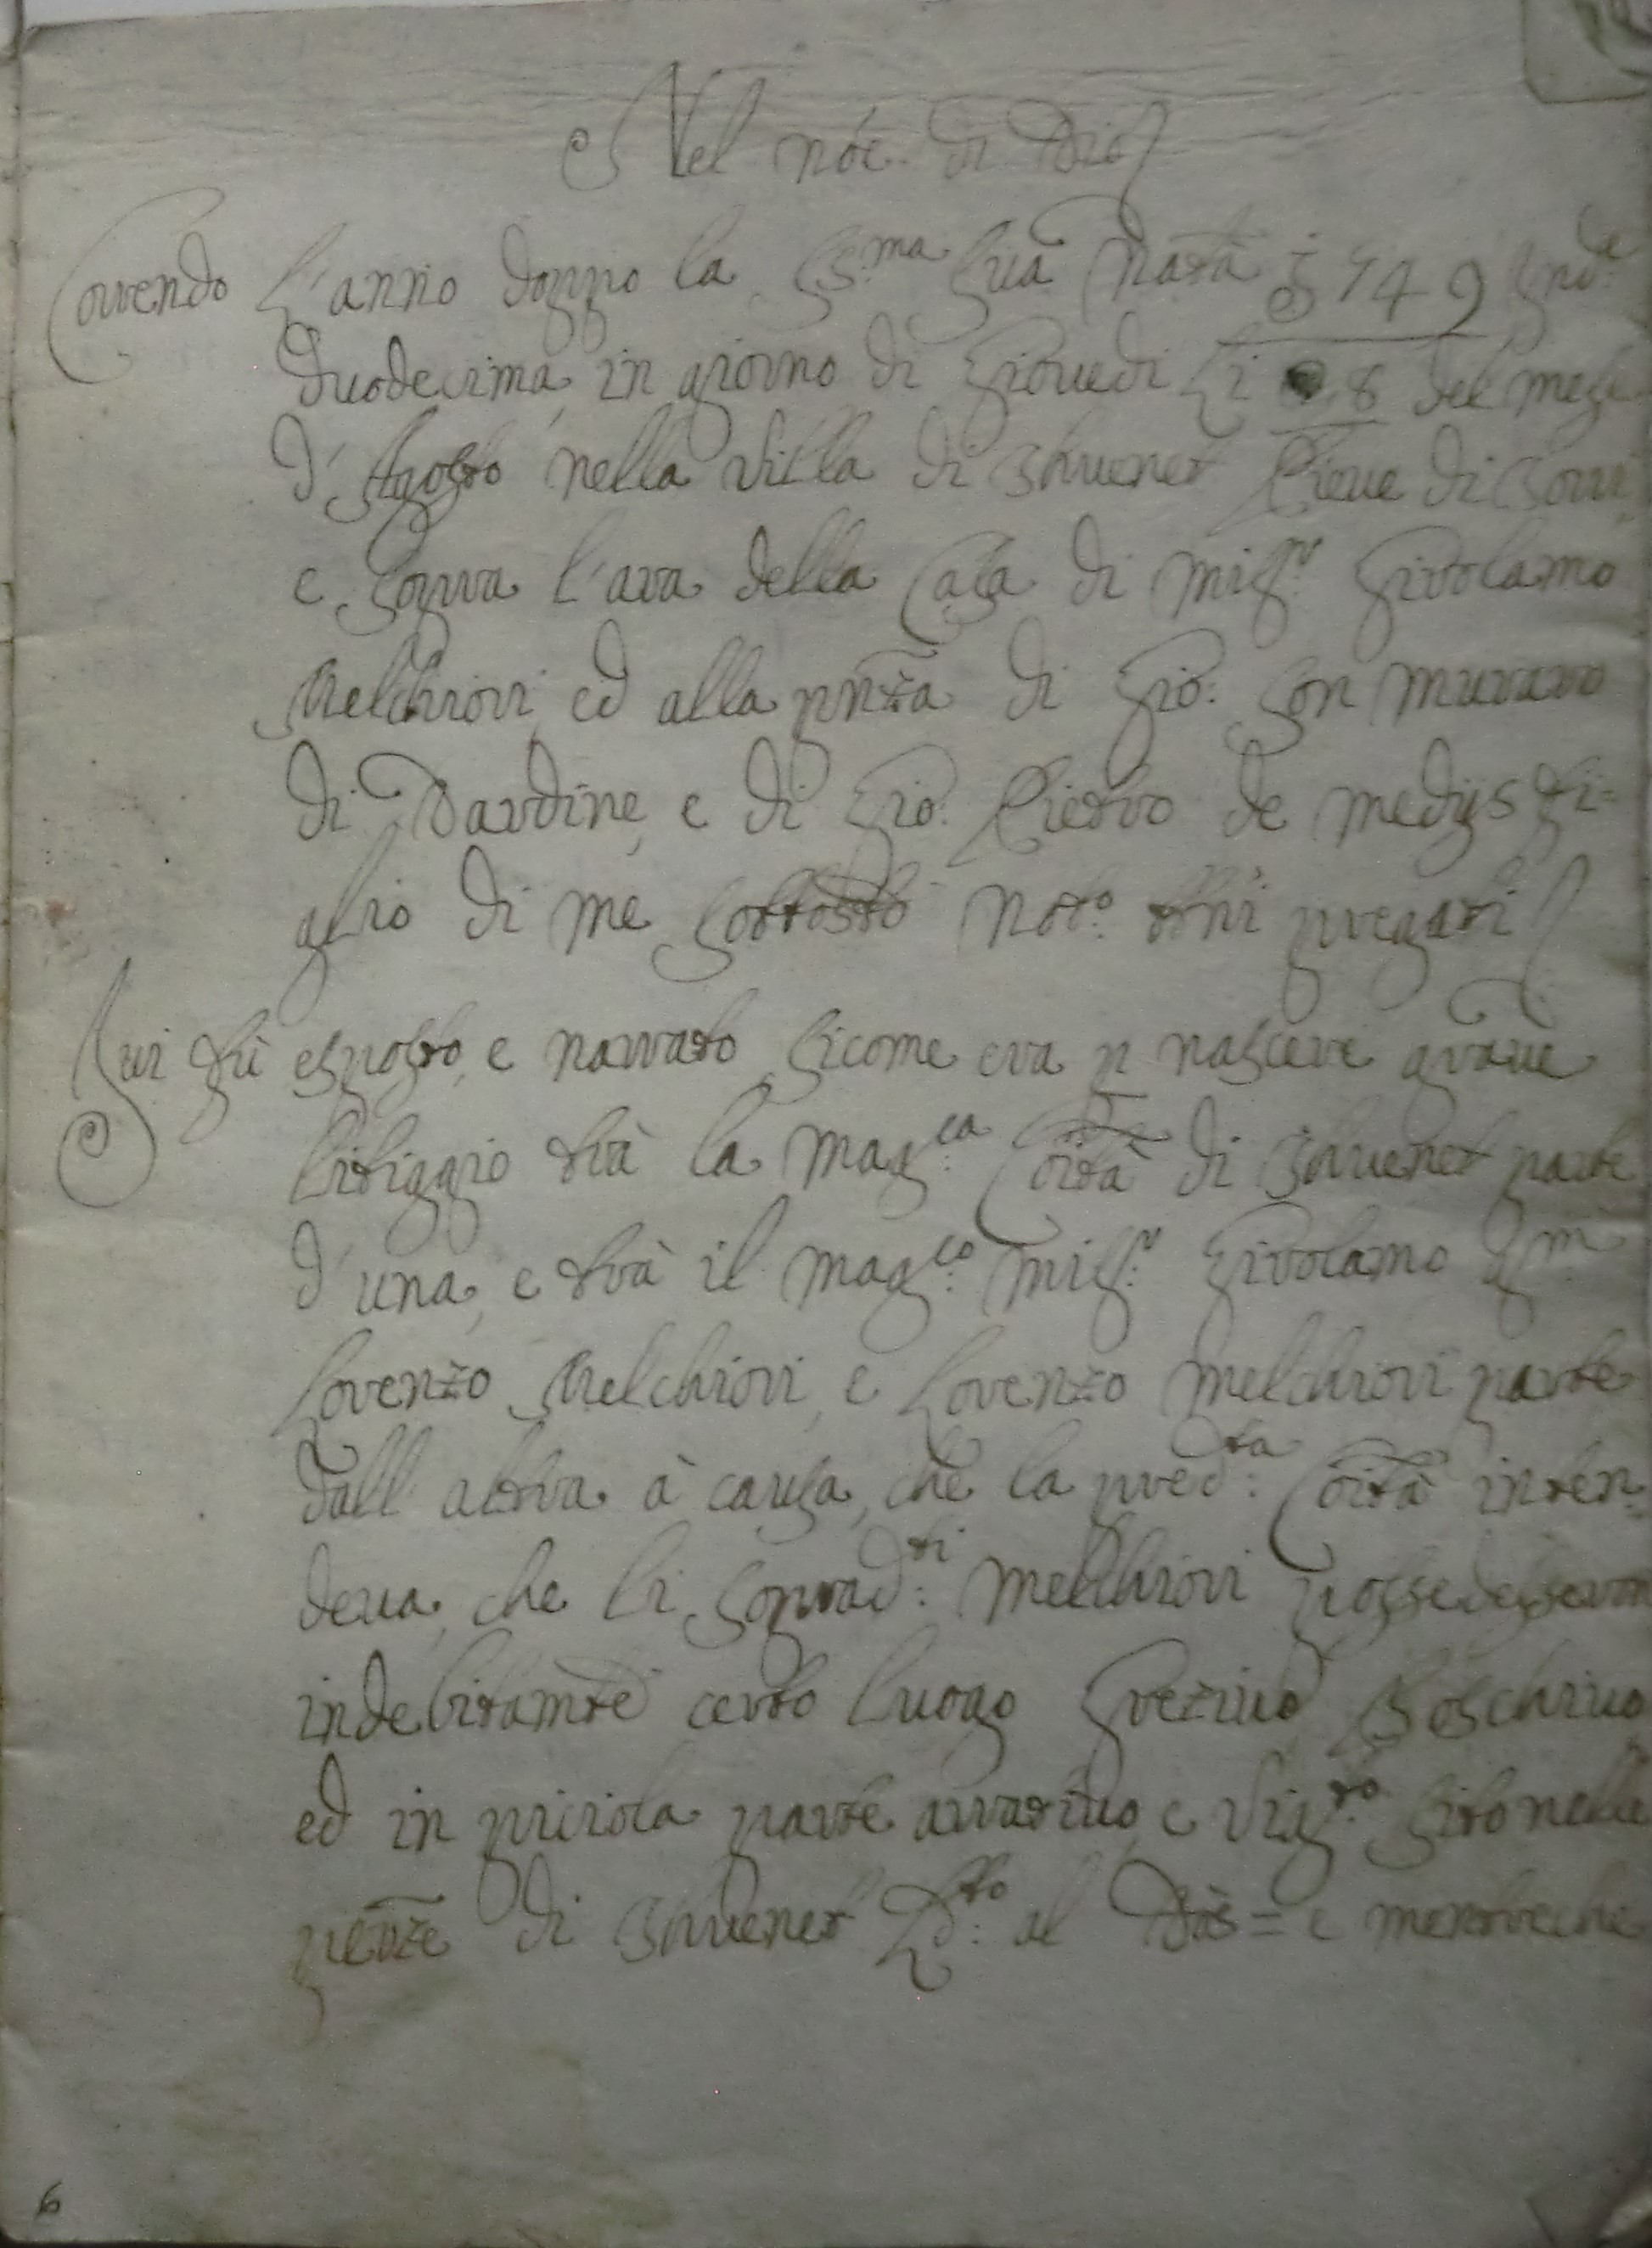 Nel nõe di Dio
Correndo l'anno doppo la SS:ma Sua Natã 1749 Ind:e
duodecima, in giorno di Giouedi li 28 del mese
d'Agosto nella Villa di Priuenet Pieue di
e sopra l'ara della Casa di miss:r Girolamo
Melchiori, ed alla pñza di Gio: Son Muraro
di Dardine, e di Gio: Pietro de Medijs fi=
glio di me sottostõ Not:o tñi pregati
Iui fù esposto, e narrato sicome era p nascere graue
litiggio trà la mag:ca Cõità di Priuenet parte
d'una, e trà il mag:co miss:r Girolamo qm
Lorenzo Melchiori, e Lorenzo Melchiori parte
dall altra à causa, che la pred:ta Cõità inten=
deua, che li soprad:ti Melchiori possedessero
indebitamte certo luogo greziuo Boschiuo
ed in piciola parte arratiuo, e Vig:to sito nelle
pẽnze di Priuenet d:to al Dòs = e mentre che
6